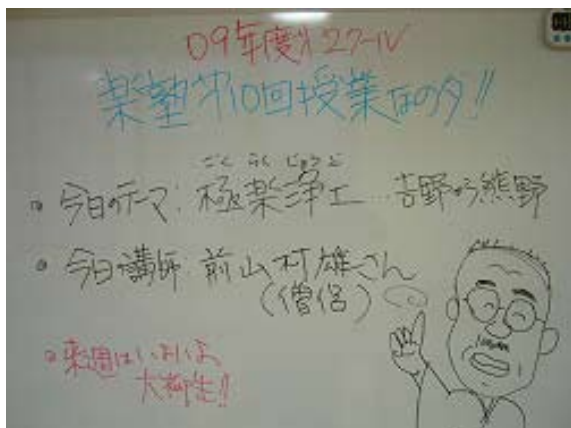 09年度オ2クール
楽塾オ10回授業なのダ!!
ごくらくじょうど
今日のテーマ:極楽浄土…吉野から熊野
今日の講師:前山村雄さん
(僧侶)
来週はいよいよ
大柳生!!